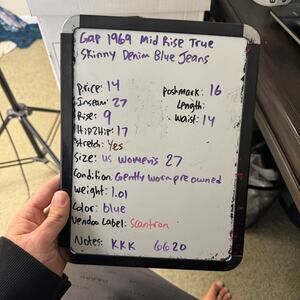 Gap 1969 Mid Rise True
Skinny Denim Blue Jeans
Price: 14
Poshmark: 16
Inseam: 27
Length:
Rise: 9
Waist: 14
Hip2Hip: 17
Stretch: Yes
Size: US Women's 27
Condition: Gently worn pre owned
Weight: 1.01
Color: blue
Vendoo Label: Scantron
Notes: KKK 6620